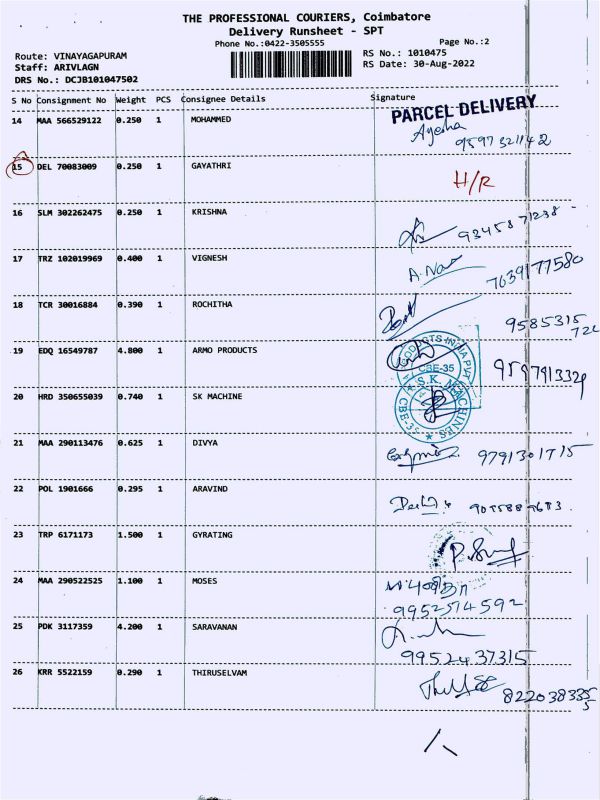 THE PROFESSIONAL COURIERS, Coimbatore
Delivery Runsheet - SPT
Phone No.:0422-3505555
Page No.:2
Route: VINAYAGAPURAM
RS No.: 1010475
Staff: ARIVLAGN
RS Date: 30-Aug-2022
DRS No.: DCJB101047502
S No Consignment No Weight PCS Consignee Details Signature
PARCEL DELIVERY
14 MAA 566529122 0.250 1 MOHAMMED
Ayesha
15 DEL 70083009 0.250 1 GAYATHRI H/R
16 SLM 302262475 0.250 1 KRISHNA
17 TRZ 102019969 0.400 1 VIGNESH 7639177580
18 TCR 30016884 0.390 1 ROCHITHA
19 EDQ 16549787 4.800 1 ARMO PRODUCTS
CBE-35
20 HRD 350655039 0.740 1 SK MACHINE
S.K. MACHINES
CBE-35
21 MAA 290113476 0.625 1 DIVYA 9791301715
22 POL 1901666 0.295 1 ARAVIND
23 TRP 6171173 1.500 1 GYRATING
24 MAA 290522525 1.100 1 MOSES
9952514592
25 PDK 3117359 4.200 1 SARAVANAN
9952437315
26 KRR 5522159 0.290 1 THIRUSELVAM